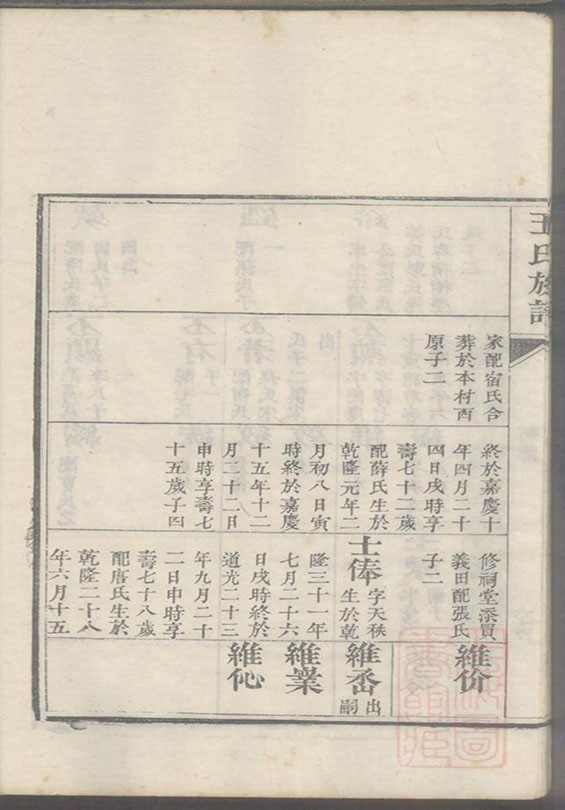 王氏族譜
家配宿氏合
葬於本村西
原子二
終於嘉慶十
年四月二十
四日戌時享
壽七十二歲
配薛氏生於
乾隆元年二
月初八日寅
時終於嘉慶
十五年十二
月二十二日
申時享壽七
十五歲子四
修祠堂添買
義田配張氏
子二
士俸 字天秩
生於乾
隆三十一年
七月二十六
日戌時終於
道光二十三
年九月二十
二日申時享
壽七十八歲
配唐氏生於
乾隆二十八
年六月十五
維价
維岙 出
嗣
維業
維伈